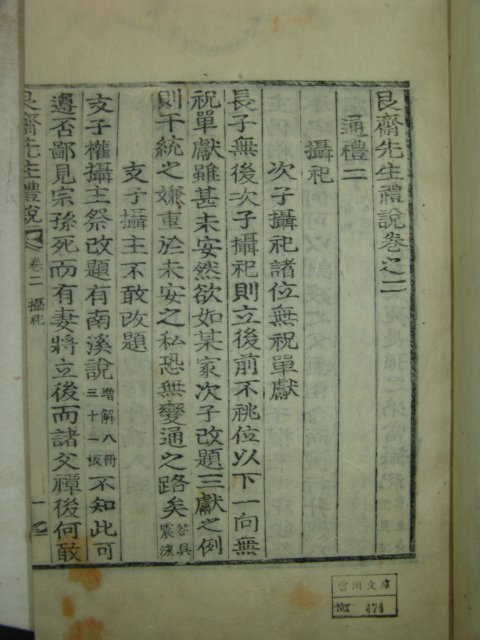 艮齋先生禮說卷之二
通禮二
攝祀
次子攝祀諸位無祝單獻
長子無後次子攝祀則立後前不祧位以下一向無
祝單獻雖甚未安然欲如某家次子改題三獻之例
則干統之嫌重於未安之私恐無變通之路矣答吳震泳
支子攝主不敢改題
支子權攝主祭改題有南溪說增解八冊三十一板不知此可
遵否鄙見宗孫死而有妻將立後而諸父禫後何敢
艮齋先生禮說 卷二 攝祀 一
文庫
No. 474